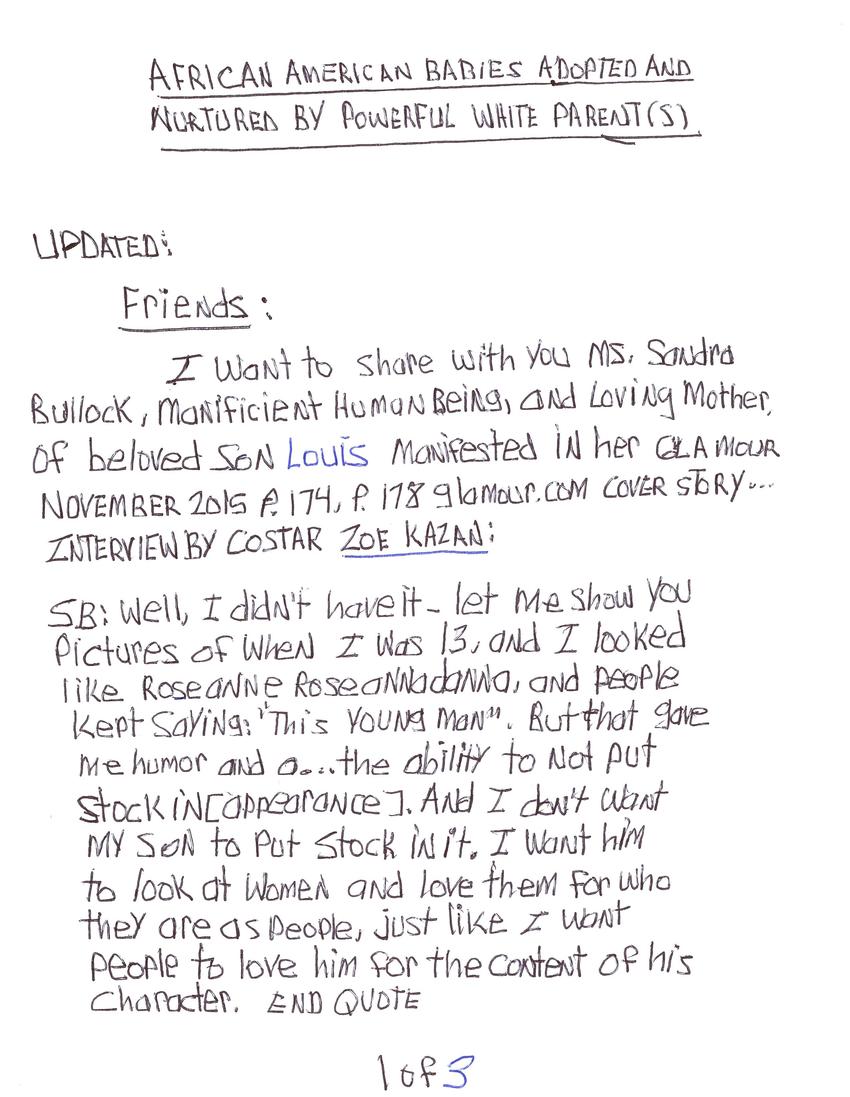 AFRICAN AMERICAN BABIES ADOPTED AND
NURTURED BY POWERFUL WHITE PARENT(S)
UPDATED:
Friends:
I Want to share with you Ms. Sandra
Bullock, Manificient Human Being, and Loving Mother,
Of beloved Son Louis Manifested IN her GLAMOUR
NOVEMBER 2015 P. 174, P. 178 glamour.com COVER STORY...
INTERVIEW BY COSTAR ZOE KAZAN:
SB: Well, I didn't have it - let me show you
Pictures of when I was 13, and I looked
like Roseanne Roseannadanna, and people
kept saying: "This YOUNG Man". But that gave
me humor and a....the ability to Not put
stock in[appearance]. And I don't want
MY SON to Put Stock in it. I Want him
to look at Women and love them for who
they are as People, just like I want
people to love him for the content of his
Character. END QUOTE
1 of 3